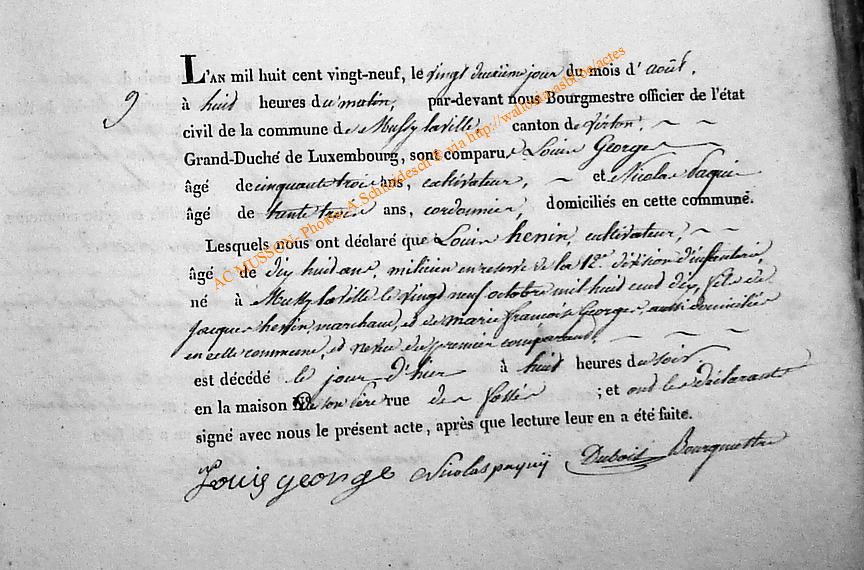 9
L'AN mil huit cent vingt-neuf, le vingt deuxieme jour du mois d'août,
à huit heures du matin, par-devant nous Bourgmestre officier de l'état
civil de la commune de Mussy laville, canton de virton,
Grand-Duché de Luxembourg, sont comparus Louis George
âgé de cinquante trois ans, cultivateur, et Nicolas paquii
âgé de trente trois ans, cordonnier, domiciliés en cette commune.
Lesquels nous ont déclaré que Louis henin, cultivateur,
âgé de dix huit ans, milicien en reserve de la 12e division d'infanterie,
né à Mussy laville le vingt neuf octobre mil huit cent dix, fils de
jacques henin, marchand, et de marie françoise George, aussi domiciliés
en cette commune, et neveu du premier comparant,
est décédé le jour d'hier à huit heures du soir
en la maison de son père rue des fossés ; et ont les déclarants
signé avec nous le présent acte, après que lecture leur en a été faite.
Louis george Nicolas paquij Dubois Bourgmestre
AC MUSSON- Photos A. Schmidesch © via http://wallonia.asbl.be/actes